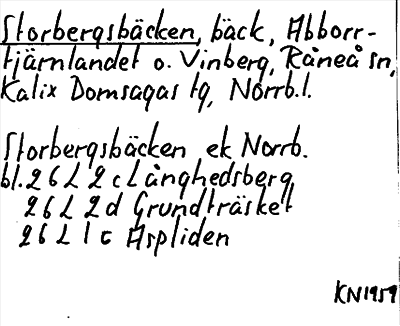 Storbergsbäcken, bäck, Abborr-
tjärnlandet o. Vinberg, Råneå sn,
Kalix Domsagas tg, Norrb.l.
Storbergsbäcken ek Norrb.
bl. 26 L 2 c Långhedsberg
26 L 2 d Grundträsket
26 L 1 c Aspliden
KN1959